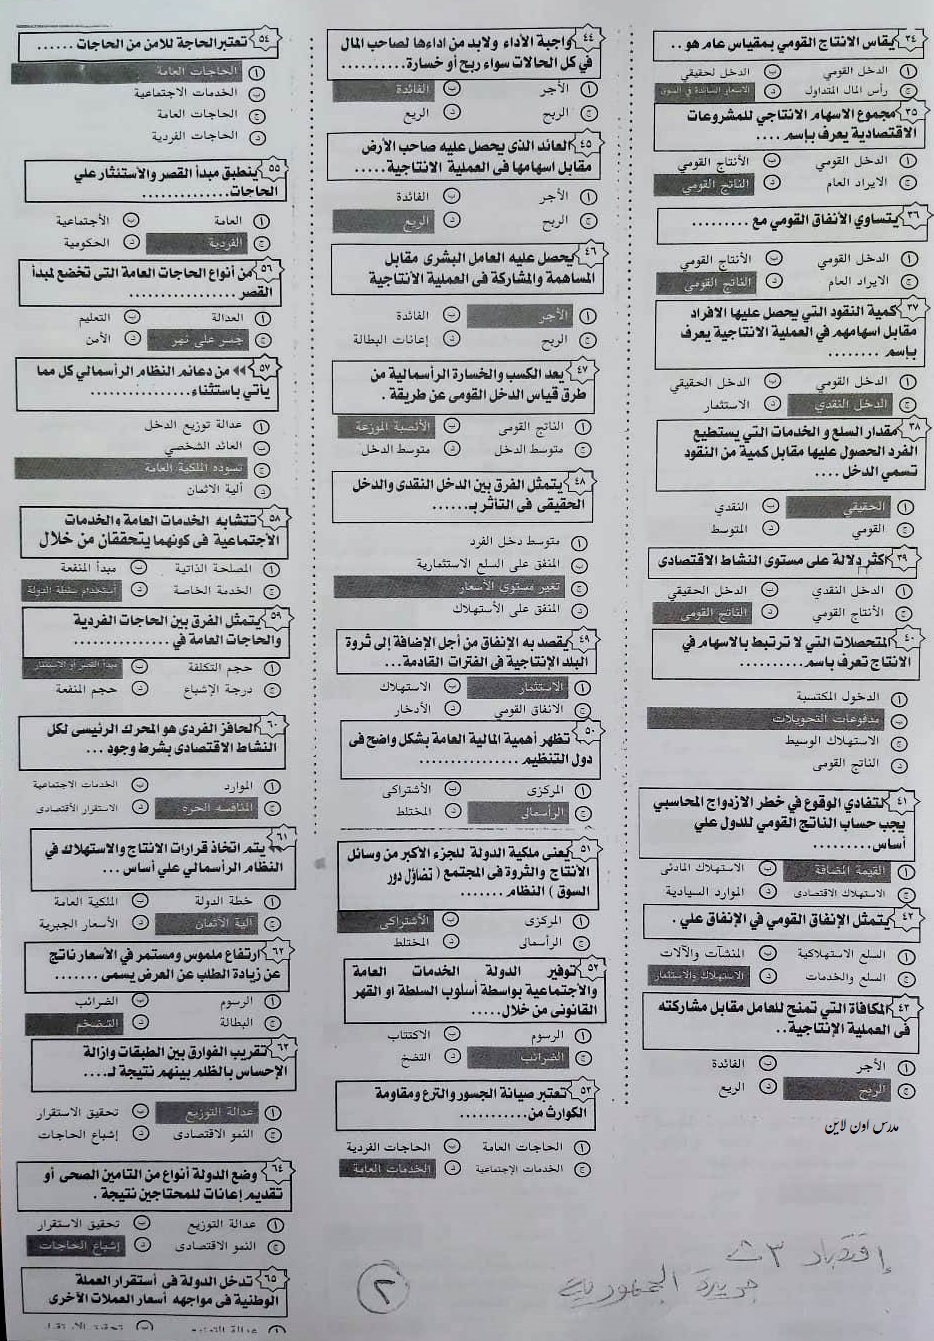 ٣٤ يقاس الانتاج القومي بمقياس عام هو ..
أ الدخل القومي ب الدخل لحقيقي
ج رأس المال المتداول د الاسعار السائدة في السوق
٣٥ مجموع الاسهام الانتاجي للمشروعات
الاقتصادية يعرف بإسم ....
أ الدخل القومي ب الأنتاج القومي
ج الايراد العام د الناتج القومي
٣٦ يتساوي الأنفاق القومي مع .........
أ الدخل القومي ب الأنتاج القومي
ج الايراد العام د الناتج القومي
٣٧ كمية النقود التي يحصل عليها الافراد
مقابل اسهامهم في العملية الانتاجية يعرف
بإسم ........
أ الدخل القومي ب الدخل الحقيقي
ج الدخل النقدي د الاستثمار
٣٨ مقدار السلع و الخدمات التي يستطيع
الفرد الحصول عليها مقابل كمية من النقود
تسمي الدخل ....
أ الحقيقي ب النقدي
ج القومي د المتوسط
٣٩ اكثر دلالة على مستوى النشاط الاقتصادى
أ الدخل النقدي ب الدخل الحقيقي
ج الأنتاج القومي د الناتج القومى
٤٠ المتحصلات التي لا ترتبط بالاسهام في
الانتاج تعرف باسم..........
أ الدخول المكتسبة
ب مدفوعات التحويلات
ج الاستهلاك الوسيط
د الناتج القومى
٤١ لتفادي الوقوع في خطر الازدواج المحاسبي
يجب حساب الناتج القومي للدول علي
أساس .........
أ القيمة المضافة ب الاستهلاك المادئى
ج الاستهلاك الاقتصادى د الموارد السيادية
٤٢ يتمثل الإنفاق القومي في الإنفاق علي .
أ السلع الاستهلاكية ب المنشآت والآلات
ج السلع والخدمات د الاستهلاك والاستثمار
٤٣ المكافأة التي تمنح للعامل مقابل مشاركته
فى العملية الإنتاجية..
أ الأجر ب الفائدة
ج الربح د الريع
مدرس اون لاين
٤٤ واجبة الأداء ولابد من اداءها لصاحب المال
في كل الحالات سواء ربح أو خسارة..........
أ الأجر ب الفائدة
ج الربح د الريع
٤٥ العائد الذى يحصل عليه صاحب الأرض
مقابل اسهامها فى العملية الانتاجية.....
أ الأجر ب الفائدة
ج الربح د الريع
٤٦ يحصل عليه العامل البشرى مقابل
المساهمة والمشاركة فى العملية الانتاجية
أ الأجر ب الفائدة
ج الربح د إعانات البطالة
٤٧ يعد الكسب والخسارة الرأسمالية من
طرق قياس الدخل القومى عن طريقة .
أ الناتج القومى ب الأنصبة الموزعة
ج متوسط الدخل د متوسط الدخل
٤٨ يتمثل الفرق بين الدخل النقدى والدخل
الحقيقى فى التأثر بـ......
أ متوسط دخل الفرد
ب المنفق على السلع الاستثمارية
ج تغير مستوى الأسعار
د المنفق على الأستهلاك
٤٩ يقصد به الإنفاق من أجل الإضافة إلى ثروة
البلد الإنتاجية فى الفترات القادمة...
أ الاستثمار ب الاستهلاك
ج الانفاق القومى د الأدخار
٥٠ تظهر أهمية المالية العامة بشكل واضح فى
دول التنظيم ...............
أ المركزى ب الأشتراكى
ج الرأسمالى د المختلط
٥١ يعنى ملكية الدولة للجزء الاكبر من وسائل
الانتاج والثروة فى المجتمع ( تضاؤل دور
السوق ) النظام .......
أ المركزى ب الأشتراكى
ج الرأسمالى د المختلط
٥٢ توفير الدولة الخدمات العامة
والاجتماعية بواسطة أسلوب السلطة او القهر
القانونى من خلال.....
أ الرسوم ب الاكتتاب
ج الضرائب د التضخ
٥٣ تعتبر صيانة الجسور والترع ومقاومة
الكوارث من..........
أ الحاجات العامة ب الحاجات الفردية
ج الخدمات الإجتماعية د الخدمات العامة
٥٤ تعتبر الحاجة للامن من الحاجات ......
أ الحاجات العامة
ب الخدمات الاجتماعية
ج الحاجات العامة
د الحاجات الفردية
٥٥ ينطبق مبدأ القصر والأستئثار علي
الحاجات..............
أ العامة ب الأجتماعية
ج الفردية د الحكومية
٥٦ من أنواع الحاجات العامة التى تخضع لمبدأ
القصر ................
أ العدالة ب التعليم
ج جسر على نهر د الأمن
٥٧ من دعائم النظام الرأسمالي كل مما
يأتي باستثناء...............
أ عدالة توزيع الدخل
ب العائد الشخصي
ج تسوده الملكية العامة
د ألية الاثمان
٥٨ تتشابه الخدمات العامة والخدمات
الأجتماعية فى كونهما يتحققان من خلال
أ المصلحة الذاتية ب مبدأ المنفعة
ج الخدمة الخاصة د استخدام سلطة الدولة
٥٩ يتمثل الفرق بين الحاجات الفردية
والحاجات العامة في ..............
أ حجم التكلفة ب مبدأ القصر أو الاستئثار
ج درجة الإشباع د حجم المنفعة
٦٠ الحافز الفردى هو المحرك الرئيسى لكل
النشاط الاقتصادى بشرط وجود ...
أ الموارد ب الخدمات الاجتماعية
ج المنافسه الحره د الاستقرار الأقتصادى
٦١ يتم اتخاذ قرارات الانتاج والاستهلاك في
النظام الرأسمالي علي أساس ...
أ خطة الدولة ب الملكية العامة
ج ألية الأثمان د الأسعار الجبرية
٦٢ ارتفاع ملموس ومستمر في الأسعار ناتج
عن زيادة الطلب عن العرض يسمى .......
أ الرسوم ب الضرائب
ج البطالة د التضخم
٦٣ تقريب الفوارق بين الطبقات وازالة
الإحساس بالظلم بينهم نتيجة لـ....
أ عدالة التوزيع ب تحقيق الاستقرار
ج النمو الاقتصادى د إشباع الحاجات
٦٤ وضع الدولة أنواع من التامين الصحى أو
تقديم إعانات للمحتاجين نتيجة .
أ عدالة التوزيع ب تحقيق الاستقرار
ج النمو الاقتصادى د إشباع الحاجات
٦٥ تدخل الدولة فى أستقرار العملة
الوطنية فى مواجهه أسعار العملات الأخرى
أ عدالة التوزيع ب تحقيق الاستقرار
إقتصاد ٣ث
جريدة الجمهورية
٢